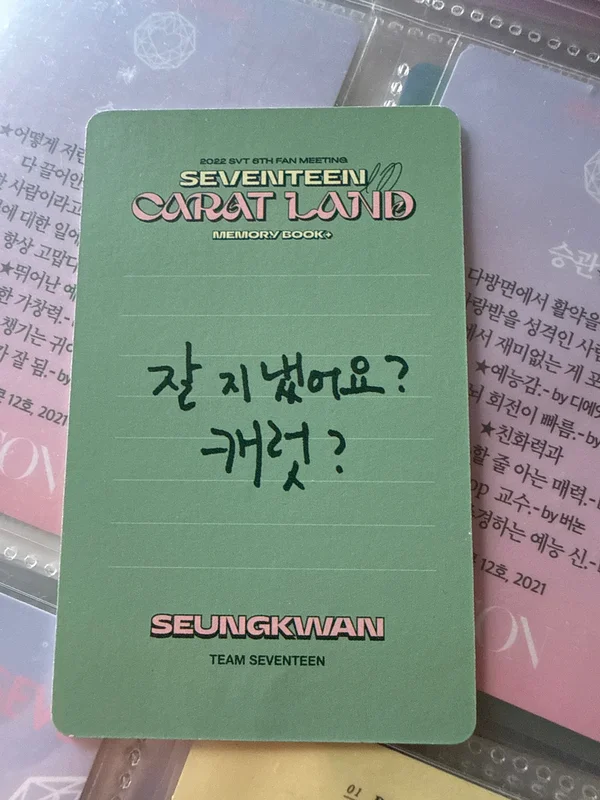 2022 SVT 6TH FAN MEETING
SEVENTEEN
CARAT LAND
MEMORY BOOK+
잘 지냈어요?
캐럿?
SEUNGKWAN
TEAM SEVENTEEN
★어떻게 저런
다 끌어안
사람이라고
에 대한 일에
항상 고맙다
★뛰어난 예
한 가창력.-
챙기는 귀여
가 잘 됨.-by
12호, 2021
승관
다방면에서 활약을
랑받을 성격인 사람
에서 재미없는 게 포
★예능감.-by 디에잇
뇌 회전이 빠름.-by
★친화력과
할 줄 아는 매력.-
교수.-by 버논
경하는 예능 신.-
12호, 2021
01